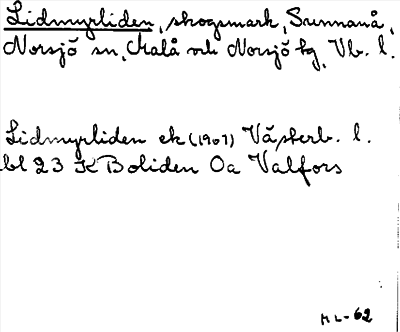 Lidmyrliden, skogsmark, Sunnanå,
Norsjö sn, Malå och Norsjö tg, Vb. l.
Lidmyrliden ek (1907) Västerb. l.
bl 23 K Boliden Oa Valfors
ML-62